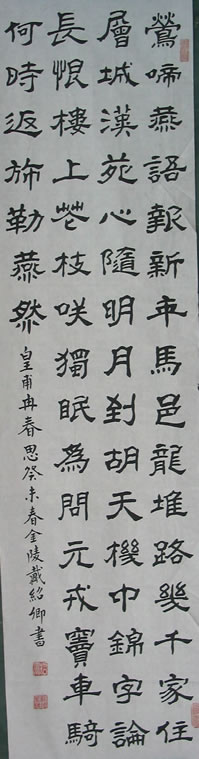 鶯啼燕語報新年馬邑龍堆路幾千家住
層城漢苑心隨明月到胡天機中錦字論
長恨樓上花枝咲獨眠為問元戎竇車騎
何時返旆勒燕然
皇甫冉春思癸未春金陵戴紹卿書